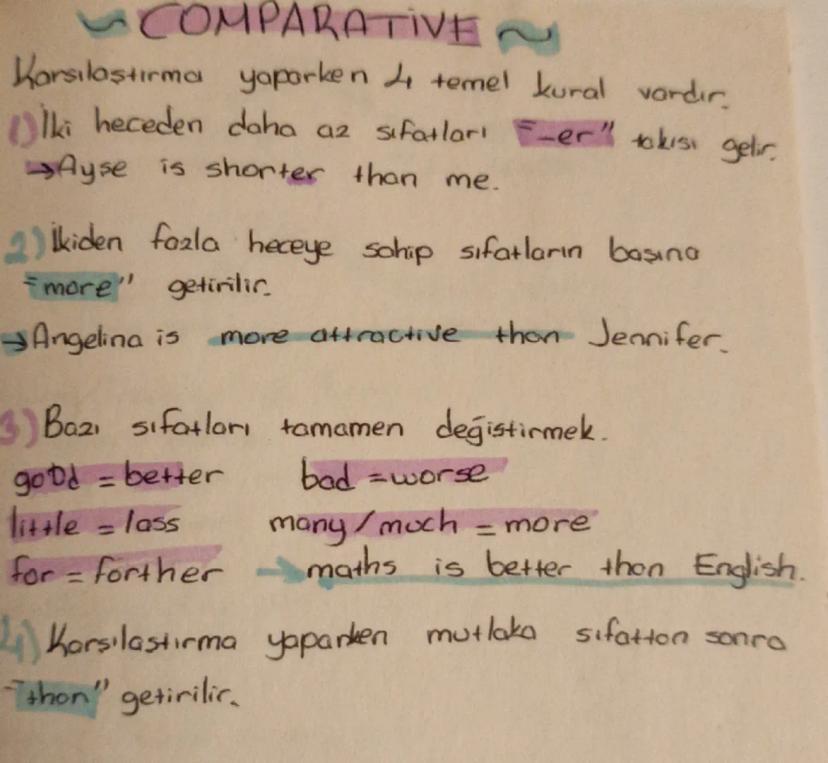 ~ COMPARATİVE ~
Karsılastırma yaparken 4 temel kural vardır.
1) İki heceden daha az sıfatları "-er" takısı gelir.
→Ayse is shorter than me.
2) İkiden fazla heceye sahip sıfatların basına
"more" getirilir.
→Angelina is more attractive than Jennifer.
3) Bazı sıfatları tamamen değistirmek.
good = better bad = worse
little = lass many/much = more
far = farther → maths is better than English.
4) Karsılastırma yaparken mutlaka sıfattan sonra
"than" getirilir.